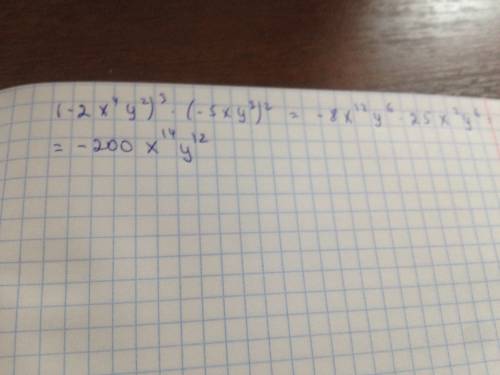 (-2x⁴y²)³ · (-5xy³)² = -8x¹²y⁶ · 25x²y⁶
= -200 x¹⁴y¹²